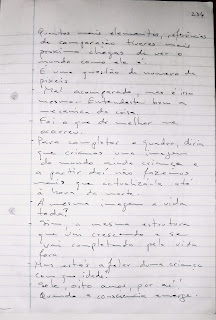 234
Quantos mais elementos, referências
de comparação tiveres mais
próximo chegas de ver o
mundo como ele é.
É uma questão do número de
pixeis.
- Mal comparado, mas é isso
mesmo. Entendeste bem a
mecânica da coisa.
- Foi o que de melhor me
ocorreu.
- Para completar o quadro, diria
que criamos uma imagem
do mundo ainda criança e
a partir daí não fazemos
mais que actualizá-la até
à hora da morte.
- A mesma imagem a vida
toda?
- Sim, a mesma estrutura
que vai crescendo e se
vai completando pela vida
fora.
- Mas estás a falar duma criança
com que idade?
- Sete, oito anos, por aí!
Quando a consciência emerge.